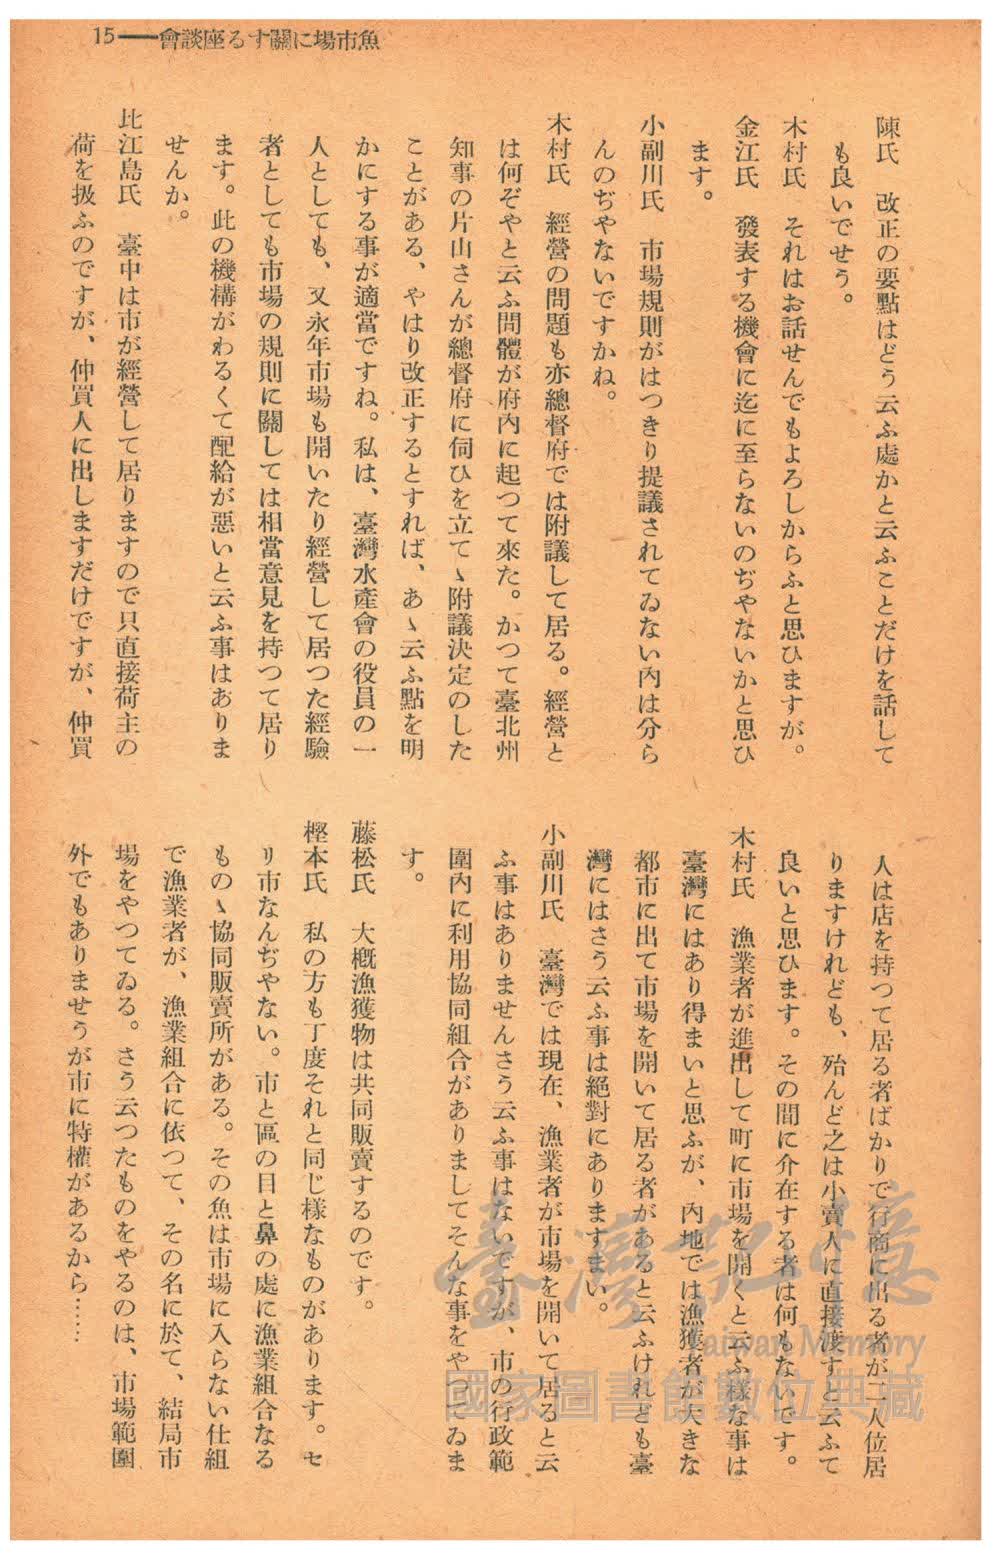 魚市場に關する座談會――15
陳氏　改正の要點はどう云ふ處かと云ふことだけを話して
も良いでせう。
木村氏　それはお話せんでもよろしからふと思ひますが。
金江氏　發表する機會に迄に至らないのぢやないかと思ひ
ます。
小副川氏　市場規則がはつきり提議されてゐない內は分ら
んのぢやないですかね。
木村氏　經營の問題も亦總督府では附議して居る。經營と
は何ぞやと云ふ問體が府內に起つて來た。かつて臺北州
知事の片山さんが總督府に伺ひを立てゝ附議決定のした
ことがある、やはり改正するとすれば、あゝ云ふ點を明
かにする事が適當ですね。私は、臺灣水產會の役員の一
人としても、又永年市場も開いたり經營して居つた經驗
者としても市場の規則に關しては相當意見を持つて居り
ます。此の機構がわるくて配給が惡いと云ふ事はありま
せんか。
比江島氏　臺中は市が經營して居りますので只直接荷主の
荷を扱ふのですが、仲買人に出しますだけですが、仲買
人は店を持つて居る者ばかりで行商に出る者が二人位居
りますけれども、殆んど之は小賣人に直接渡すと云ふて
良いと思ひます。その間に介在する者は何もないです。
木村氏　漁業者が進出して町に市場を開くと云ふ樣な事は
臺灣にはあり得まいと思ふが、內地では漁獲者が大きな
都市に出て市場を開いて居る者があると云ふけれども臺
灣にはさう云ふ事は絕對にありますまい。
小副川氏　臺灣では現在、漁業者が市場を開いて居ると云
ふ事はありませんさう云ふ事はないですが、市の行政範
圍內に利用協同組合がありましてそんな事をやつてゐま
す。
藤松氏　大槪漁獲物は共同販賣するのです。
樫本氏　私の方も丁度それと同じ樣なものがあります。セ
リ市なんぢやない。市と區の目と鼻の處に漁業組合なる
ものゝ協同販賣所がある。その魚は市場に入らない仕組
で漁業者が、漁業組合に依つて、その名に於て、結局市
場をやつてゐる。さう云つたものをやるのは、市場範圍
外でもありませうが市に特權があるから……
臺灣記憶
Taiwan Memory
國家圖書館數位典藏